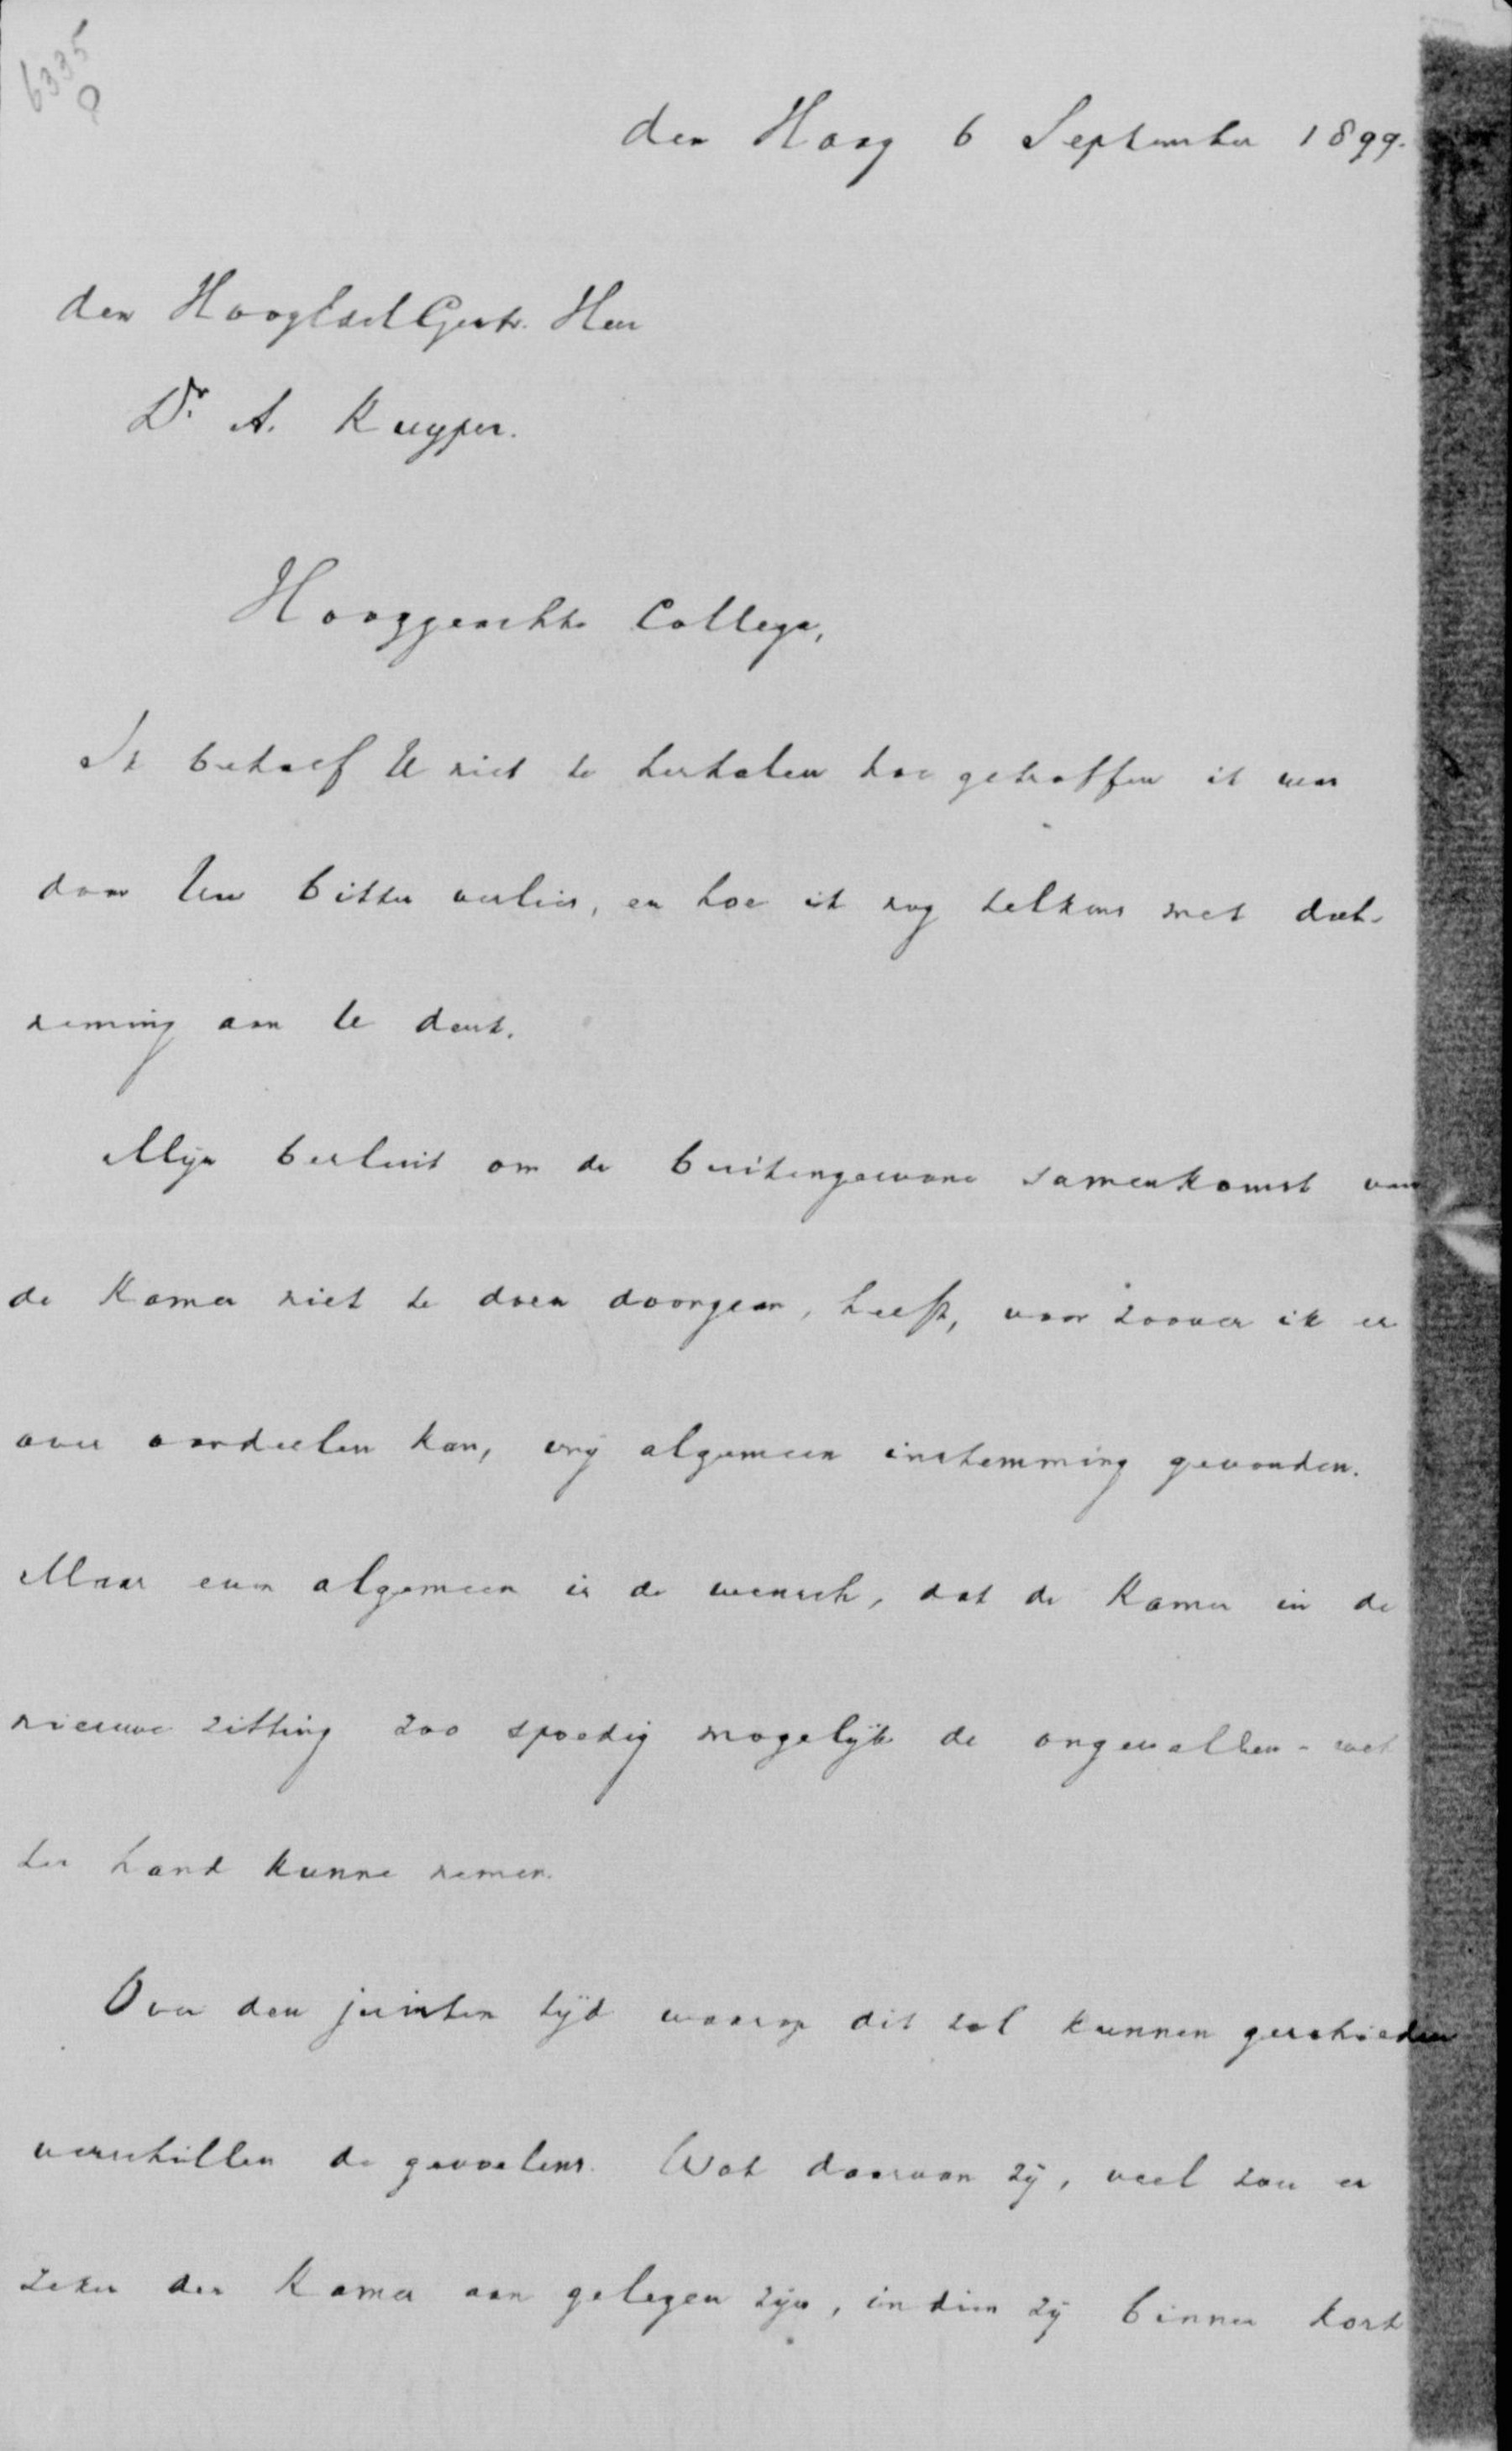 6335
den Haag 6 September 1899.
den HoogEdelGestr. Heer
Dr. A. Kuyper.
Hooggeachte Collega,
Ik behoef U niet te herhalen hoe getroffen ik was
door Uw bitter verlies, en hoe ik nog telkens met deel-
neming aan U denk.
Mijn besluit om de buitengewone samenkomst van
de Kamer niet te doen doorgaan, heeft, voor zoover ik er
over oordeelen kan, vrij algemeen instemming gevonden.
Maar even algemeen is de wensch, dat de Kamer in de
nieuwe zitting zoo spoedig mogelijk de ongevallen-wet
ter hand kunne nemen.
Over den juisten tijd waarop dit zal kunnen geschieden
verschillen de gevoelens. Wat daarvan zij, veel zou er
zeker der Kamer aan gelegen zijn, indien zij binnen kort